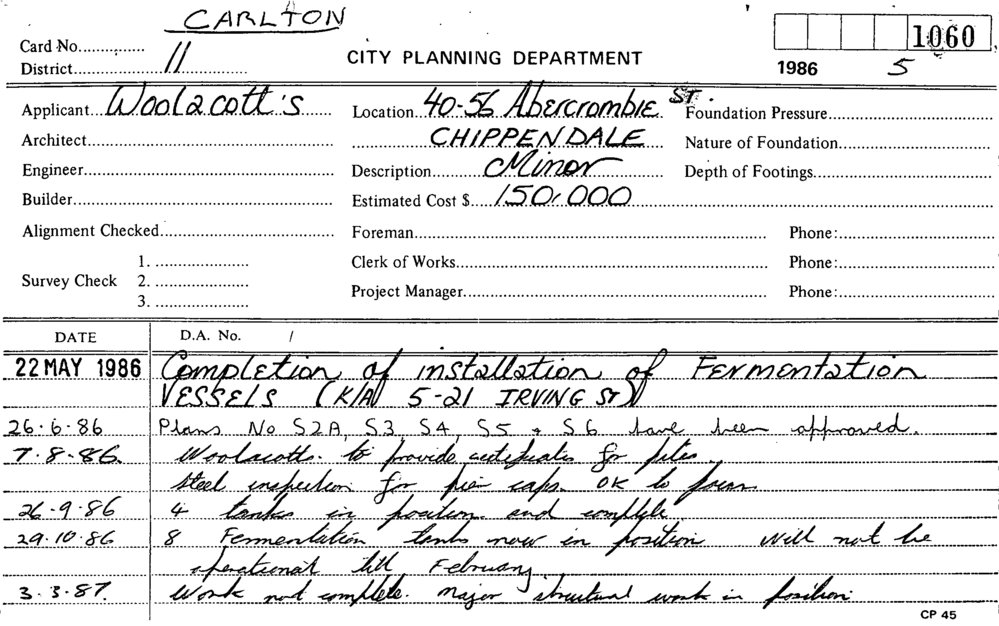 CARLTON
Card No.
1060
District 11
CITY PLANNING DEPARTMENT
1986 5
Applicant Woolacott's Location 40-56 Abercrombie ST. Foundation Pressure
Architect CHIPPENDALE Nature of Foundation
Engineer Description Minor Depth of Footings
Builder Estimated Cost $ 150,000
Alignment Checked Foreman Phone:
1. Clerk of Works Phone:
Survey Check 2.
3. Project Manager Phone:
DATE D.A. No. /
22 MAY 1986 Completion of installation of Fermentation
VESSELS (K/A 5-21 IRVING ST)
26.6.86 Plans No S2A, S3 S4 S5 + S6 have been approved.
7.8.86. Woolacotts. to provide certificates for piles.
Steel inspection for pier caps. OK to pour
26.9.86 4 tanks in position and complete
29.10.86 8 Fermentation tanks now in position Will not be
operational till February.
3.3.87. Work not complete. Major structural work in position
CP 45